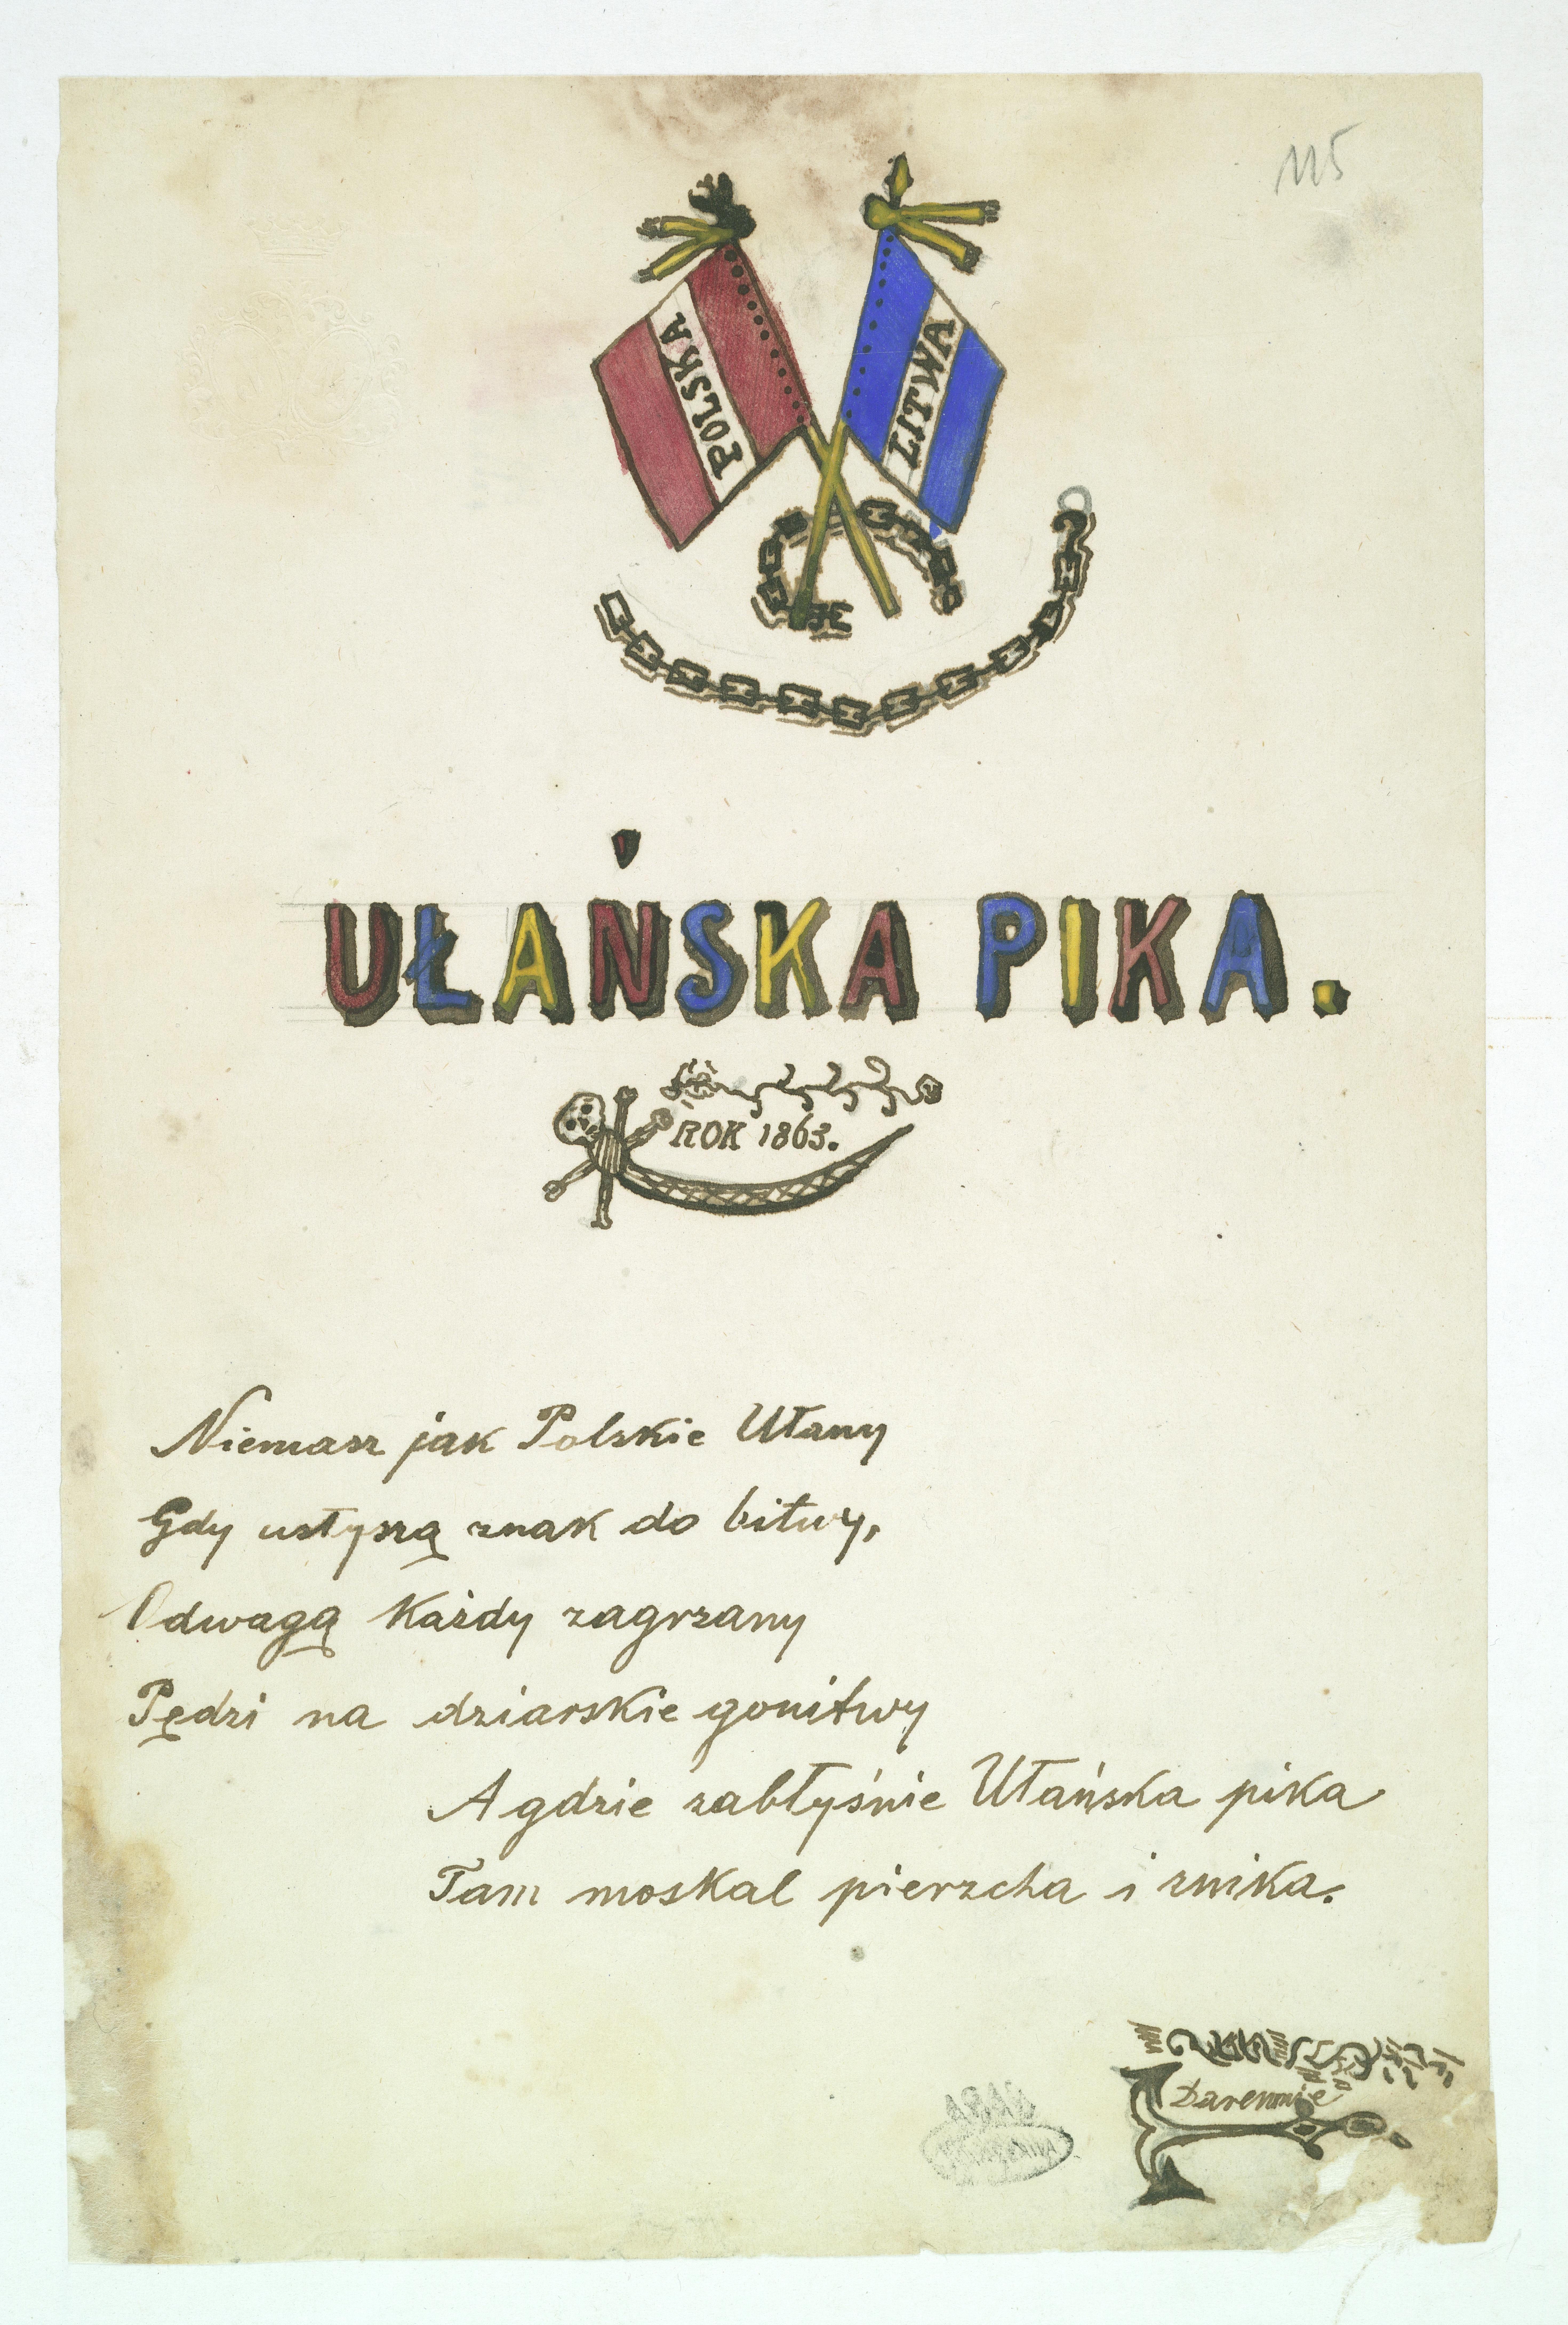 115
POLSKA
LITWA
UŁAŃSKA PIKA.
ROK 1863.
Niemasz jak Polskie Ułany
Gdy usłyszą znak do bitwy,
Odwagą Każdy zagrzany
Pędzi na dziarskie gonitwy
A gdzie zabłyśnie Ułańska pika
Tam moskal pierzcha i znika.
Daremnie